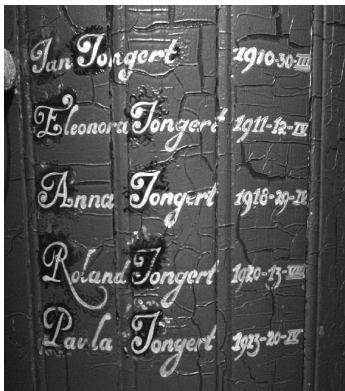 Jan Jongert 1910-30-III
Eleonora Jongert 1911-12-IV
Anna Jongert 1918-29-IV
Roland Jongert 1920-13-VIII
Paula Jongert 1923-20-IV